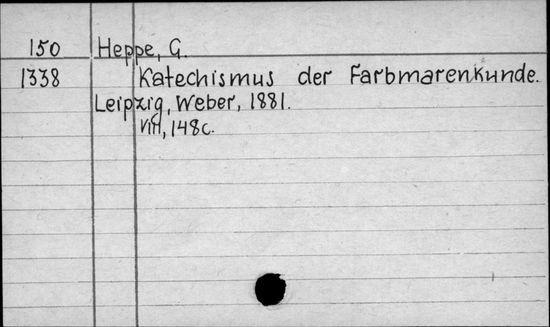 150 Heppe, G.
1338 Katechismus der Farbmarenkunde.
Leipzig, Weber, 1881.
VIII, 148c.